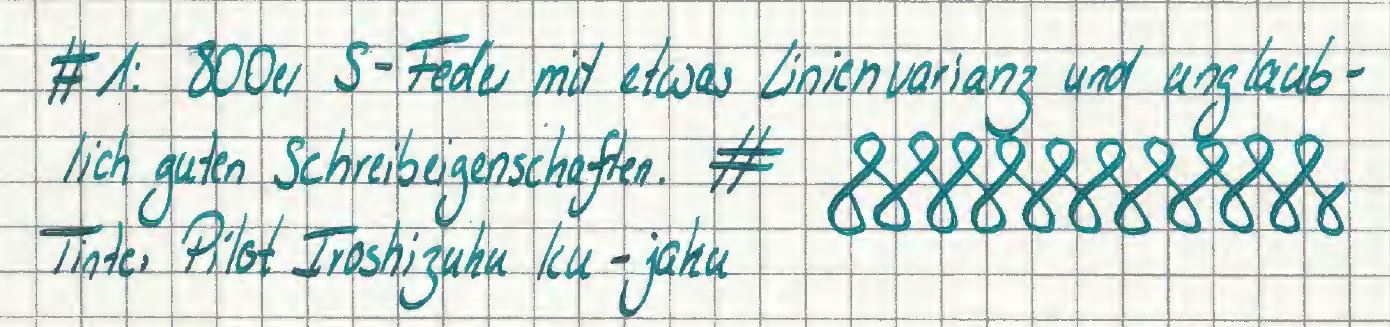 #1: 800er S-Feder mit etwas Linienvarianz und unglaub-
lich guten Schreibeigenschaften. #
Tinte: Pilot Iroshizuku ku-jaku